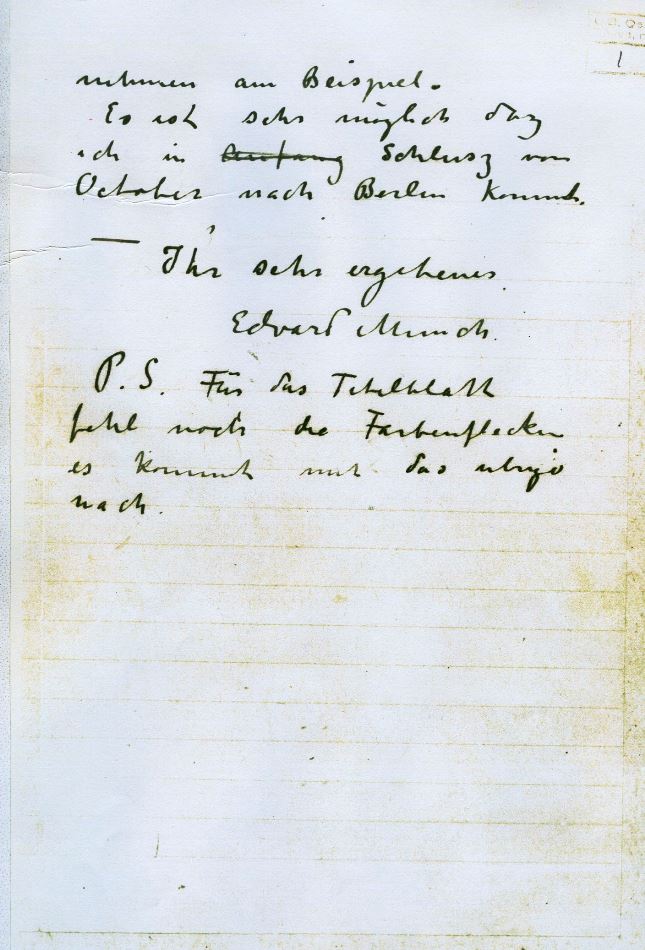 nehmen am Beispiel.
Es ist sehr möglich dasz
ich in Anfang Schlusz von
October nach Berlin komme.
—
Ihr sehr ergebener
Edvard Munch.
P.S. Für das Titelblatt
fehl noch die Farbenflecken
es kommt mit das übrige
nach.
1